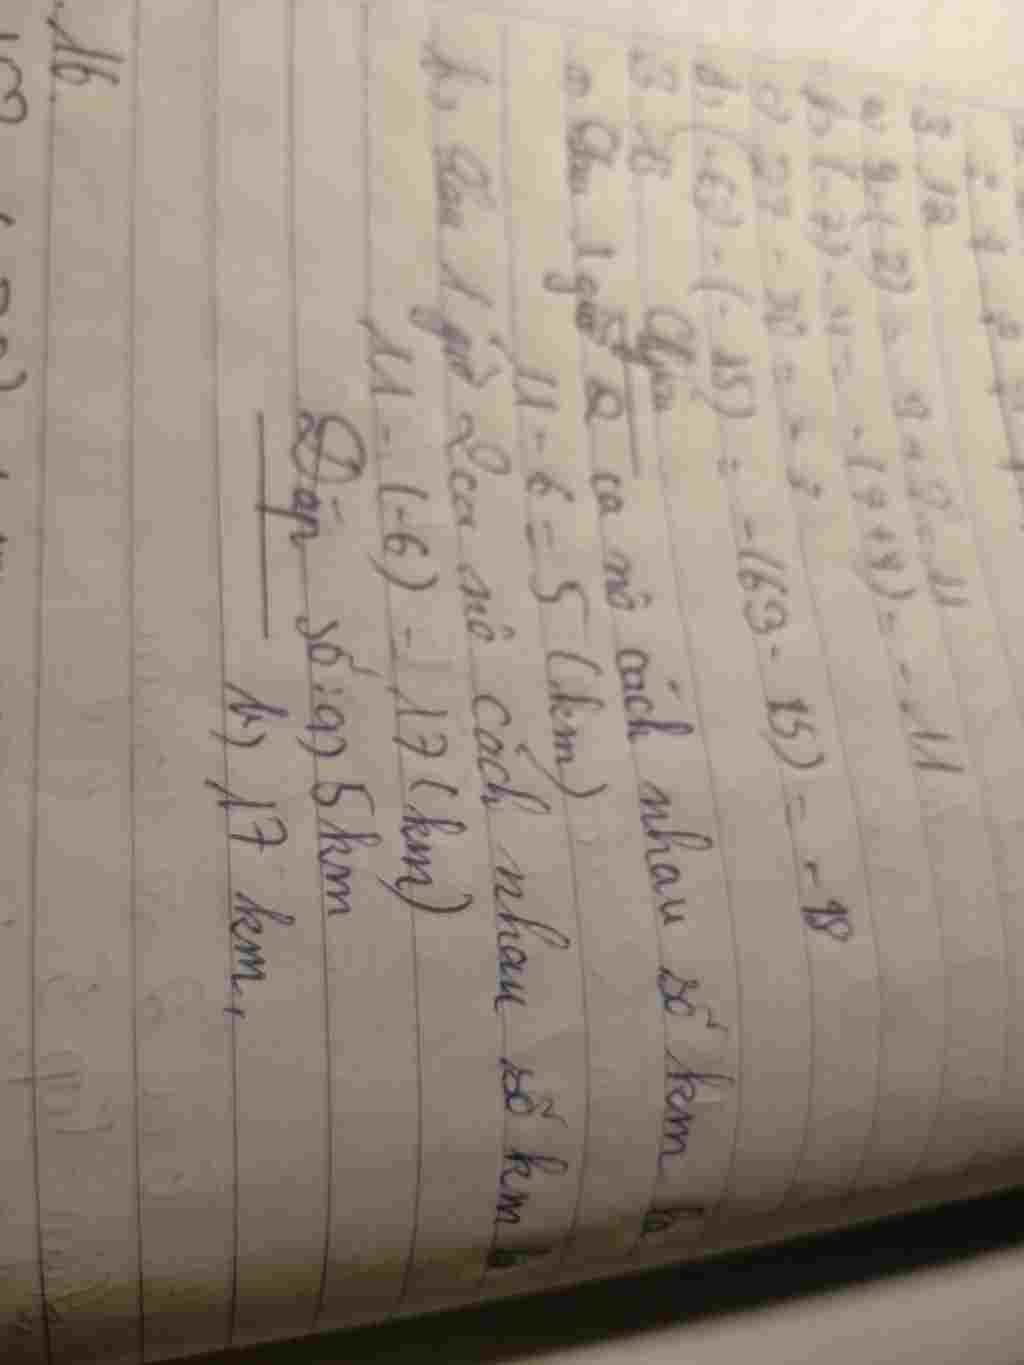 3.12
a) 9-(-2) = 9+2=11
b) (-7)-4= -(7+4)= -11
c) 27-30 = -3
d) (-63)-(-15) = -(63-15) = -48
Giải
a) Sau 1 giờ 2 ca nô cách nhau số km là
11-6=5 (km)
b, Sau 1 giờ 2 ca nô cách nhau số km là
11-(-6)=17(km)
Đáp số: a) 5km
b) 17 km,
16.